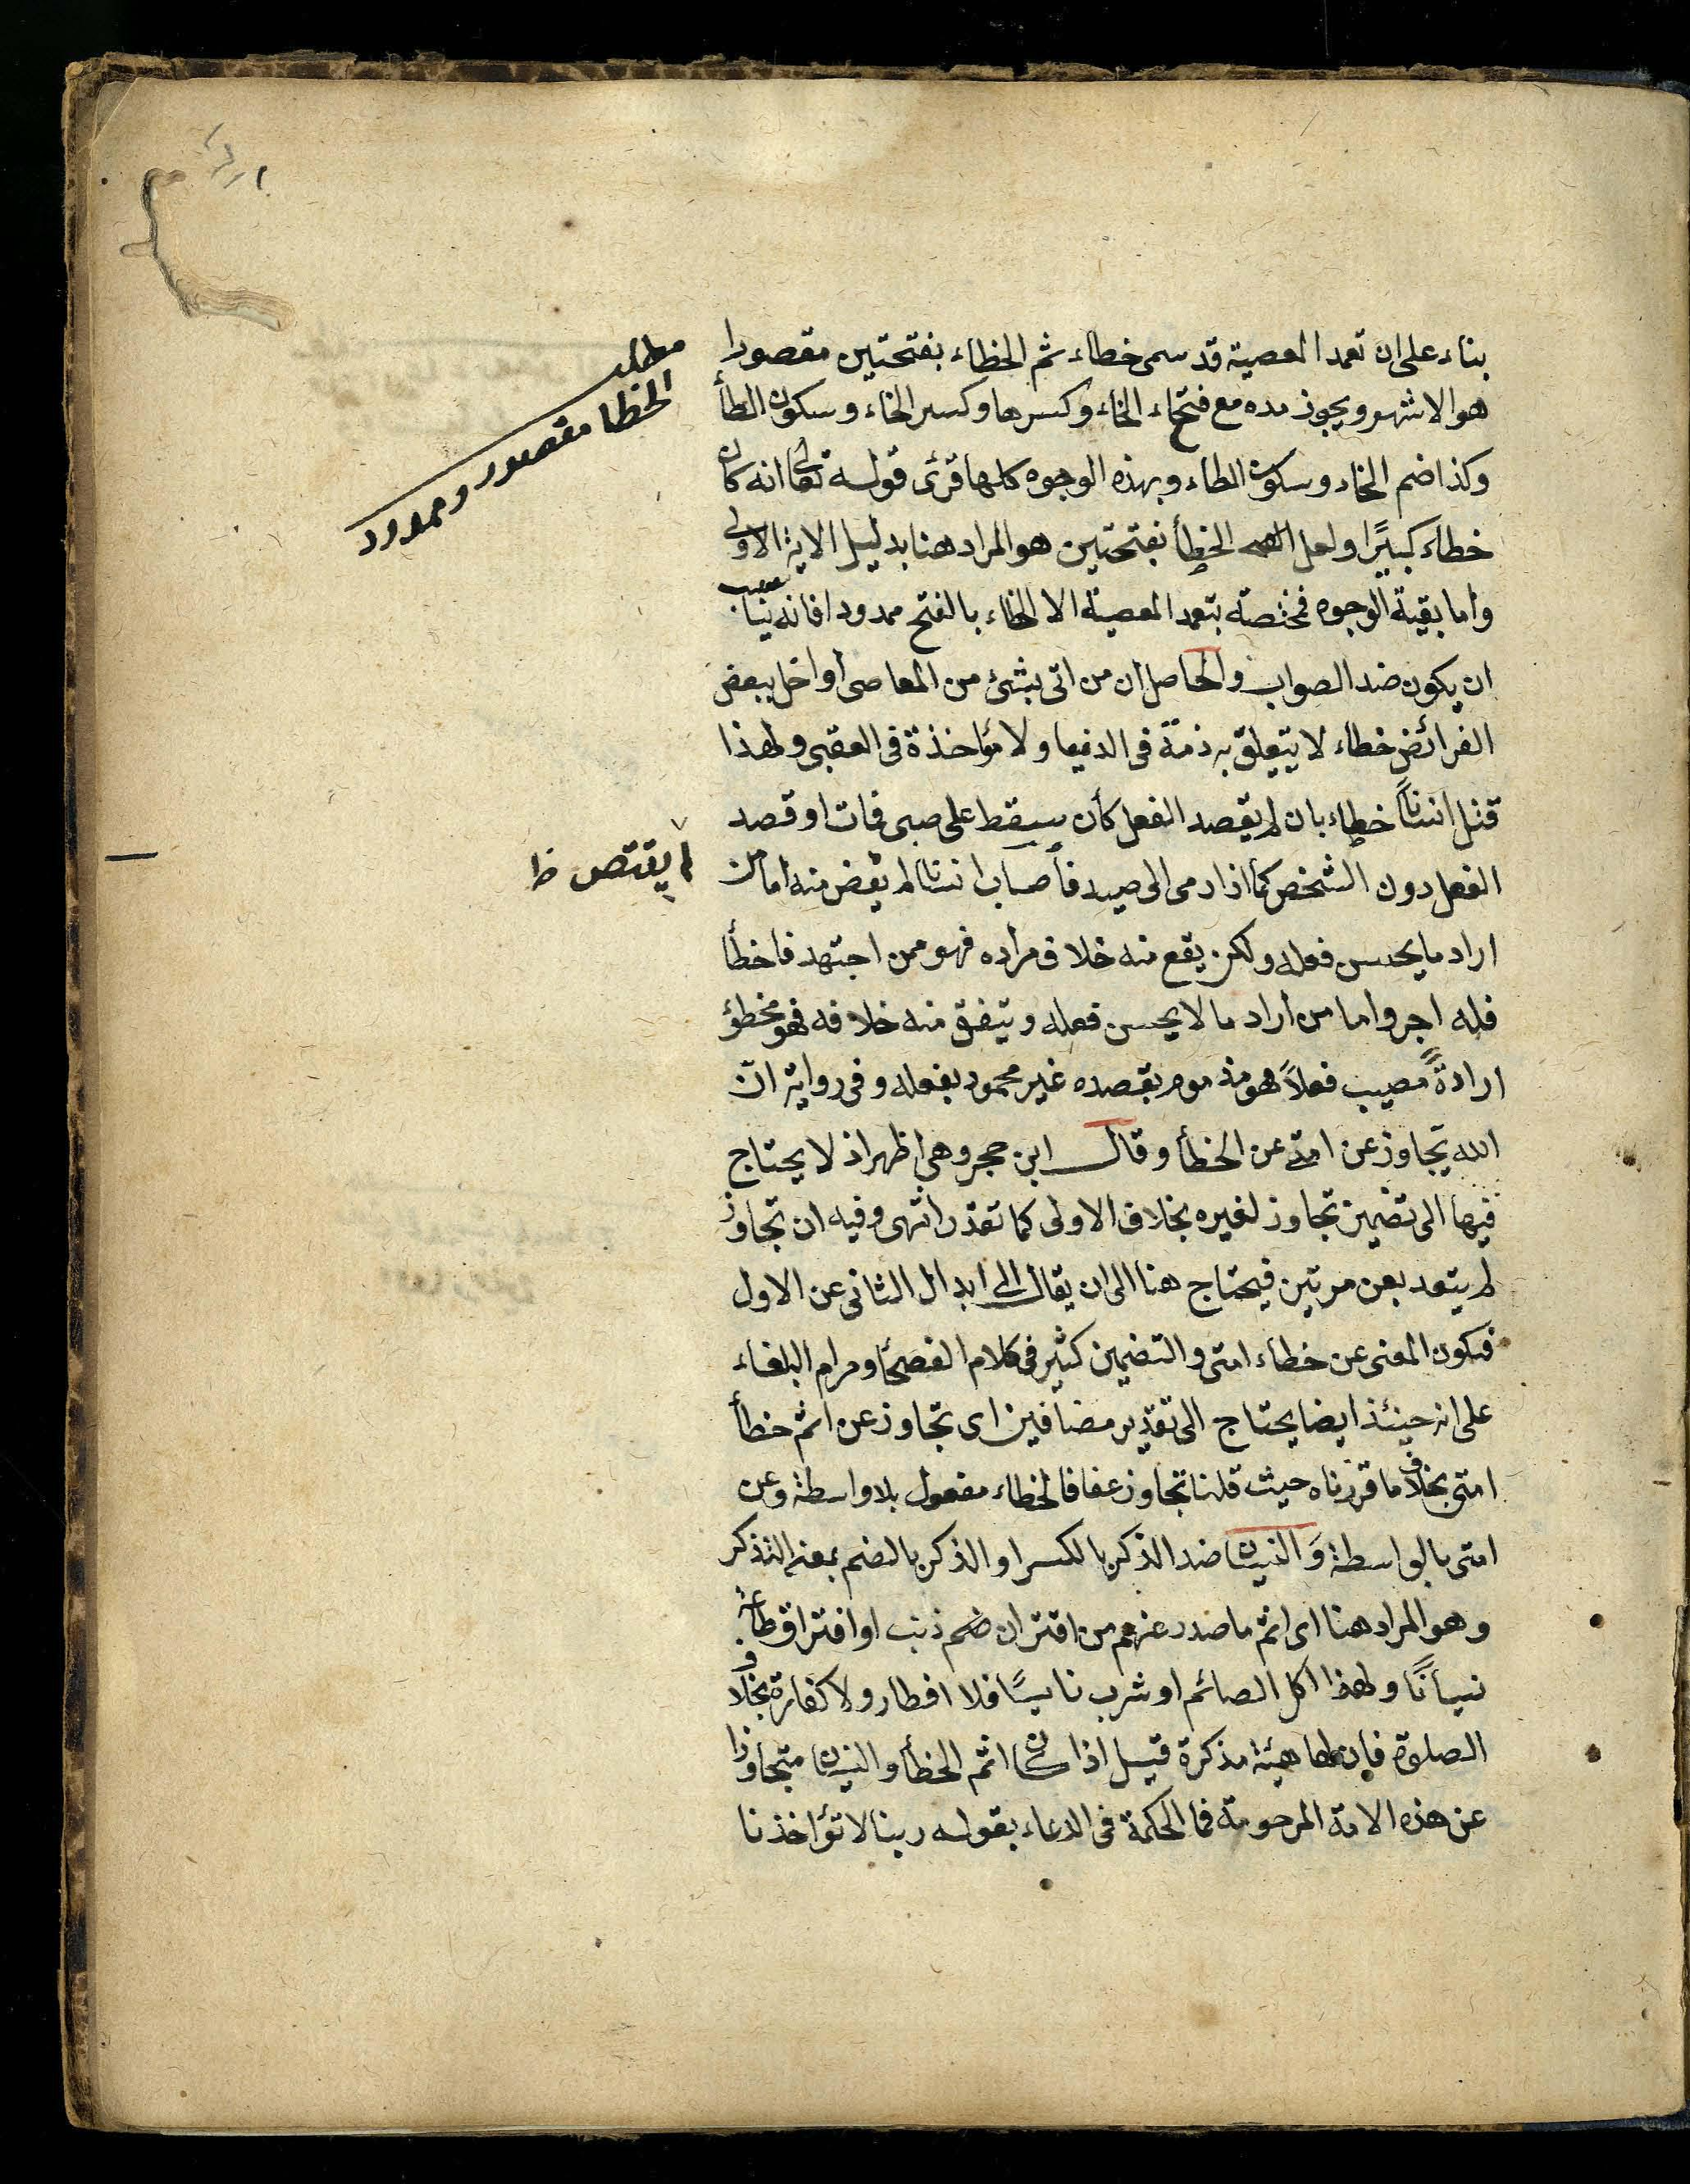 بناء على ان تعمد المعصية قد سمى خطاء ثم الخطاء بفتحتين مقصورا
هو الاشهر ويجوز مده مع فتحاء الخاء وكسرها وكسر الخاء وسكون الطأ
وكذا ضم الخاء وسكون الطاء وبهذه الوجوه كلها قرئ قوله تعالى انه كان
خطاء كبيرًا ولعل الخطأ بفتحتين هو المراد هنا بدليل الاية الاولى
وأما بقية الوجوه فمختصة بتعمد المعصية الا الخطاء بالفتح ممدودا فانه يناسب
ان يكون ضد الصواب والحاصل ان من اتى بشئ من المعاصى أو اخل ببعض
الفرائض خطاء لا يتعلق به ذمة فى الدنيا ولا مؤاخذة فى العقبى ولهذا
قتل انسانًا خطاء بان لم يقصد الفعل كأن يسقط على صبى فمات او قصد
الفعل دون الشخص كما اذا رمى الى صيد فأصاب انسانا لم يقض منه اما من
اراد ما يحسن فعله ولكن يقع منه خلاف مراده فهو ممن اجتهد فاخطأ
فله اجر واما من أراد ما لا يحسن فعله ويتفق منه خلافه فهو مخطؤ
ارادةً مصيب فعلاً فهو مذموم بقصده غير محمود بفعله وفى رواية انّ
الله تجاوز عن امتى عن الخطأ وقال ابن حجر وهى اظهر اذ لا يحتاج
فيها الى تضمين تجاوز لغيره بخلاف الاولى كما تقرر انتهى وفيه ان تجاوز
لم يتعد بعن مرتين فيحتاج هنا الى ان يقال الى ابدال الثانى عن الاول
فيكون المعنى عن خطاء امتى والتضمين كثير فى كلام الفصحأ ومرام البلغاء
على انه حينئذ ايضا يحتاج الى تقدير مضافين اى تجاوز عن اثم خطأ
امتى بخلاف ما قررناه حيث قلنا تجاوز عفا فالخطاء مفعول بلا واسطة وعن
امتى بالواسطة وَالنسيان ضد الذكر بالكسر او الذكر بالضم بمعنى التذكر
وهو المراد هنا اى اثم ما صدر عنهم من اقتران ضم ذنب او افتراق طاعة
نسيانًا ولهذا اكل الصائم او شرب ناسيًا فلا افطار ولا كفارة بخلاف
الصلوة فإن لها هيئة مذكرة قيل اذا كان اثم الخطأ والنسيان متجاوزا
عن هذه الامة المرحومة فما الحكمة فى الدعاء بقوله ربنا لا تؤاخذنا
مطلب
الخطا مقصور وممدود
لم يقتص ظ